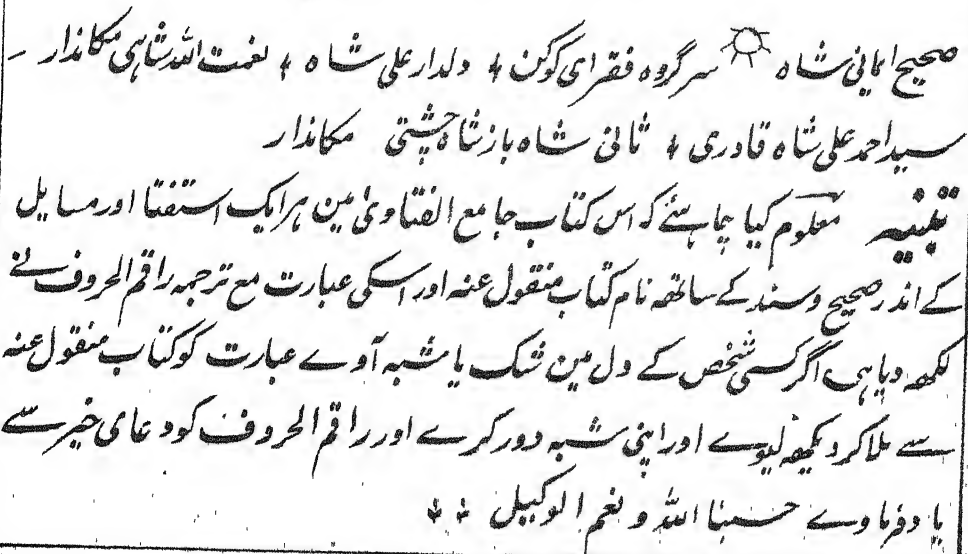 صحیح امانی شاہ سرگروہ فقرای کوکن ٭ دلدار علی شاہ ٭ نعمت اللہ شاہی مکاندار ـ
سید احمد علی شاہ قادری ٭ ثانی شاہ باز شاہ چشتی مکاندار
تنبیہ معلوم کیا چاہئے کہ اس کتاب جامع الفتاوی مین ہر ایک استفتا اور مسایل
کے اندر صحیح و سند کے ساتھہ نام کتاب منقول عنہ اور اسکی عبارت مع ترجمہ راقم الحروف نے
لکھہ دیا ہی اگر کسی شخص کے دل مین شک یا شبہ آوے عبارت کو کتاب منقول عنہ
سے ملا کر دیکھہ لیوے اور اپنی شبہ دور کرے اور راقم الحروف کو دعای خیر سے
یاد فرماوے حسبنا اللہ و نعم الوکیل ٭ ٭